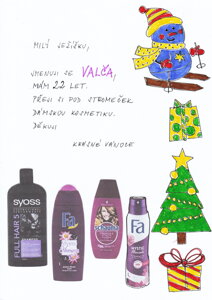 MILÝ JEŽÍŠKU,
JMENUJI SE VALČA,
MÁM 22 LET.
PŘEJI SI POD STROMEČEK
DÁMSKOU KOSMETIKU.
DĚKUJI
KRÁSNÉ VÁNOCE
syoss
FULL HAIR 5
Fa
Fa